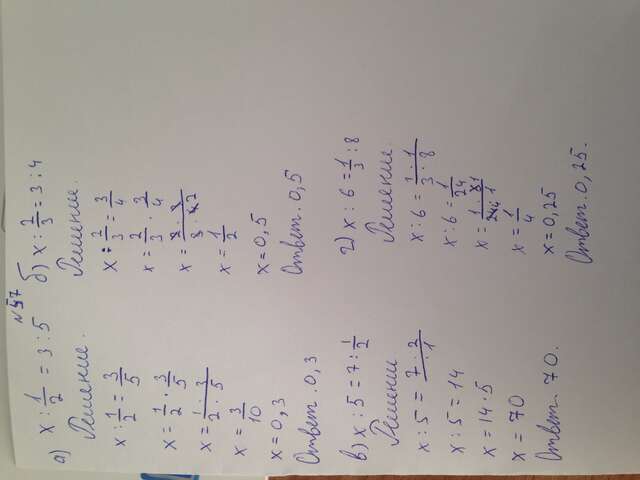 №57
а) x : 1/2 = 3 : 5
Решение.
x : 1/2 = 3/5
x = 1/2 · 3/5
x = 1 · 3 / 2 · 5
x = 3/10
x = 0,3
Ответ. 0,3
б) x : 2/3 = 3 : 4
Решение.
x : 2/3 = 3/4
x = 2/3 · 3/4
x = 2 · 3 / 3 · 4 2
x = 1/2
x = 0,5
Ответ. 0,5
в) x : 5 = 7 : 1/2
Решение
x : 5 = 7 · 2 / · 1
x : 5 = 14
x = 14 · 5
x = 70
Ответ. 70.
г) x : 6 = 1/3 : 8
Решение.
x : 6 = 1 · 1 / 3 · 8
x : 6 = 1/24
x = 1 · 6 1 / 24 4 · 1
x = 1/4
x = 0,25
Ответ. 0,25.